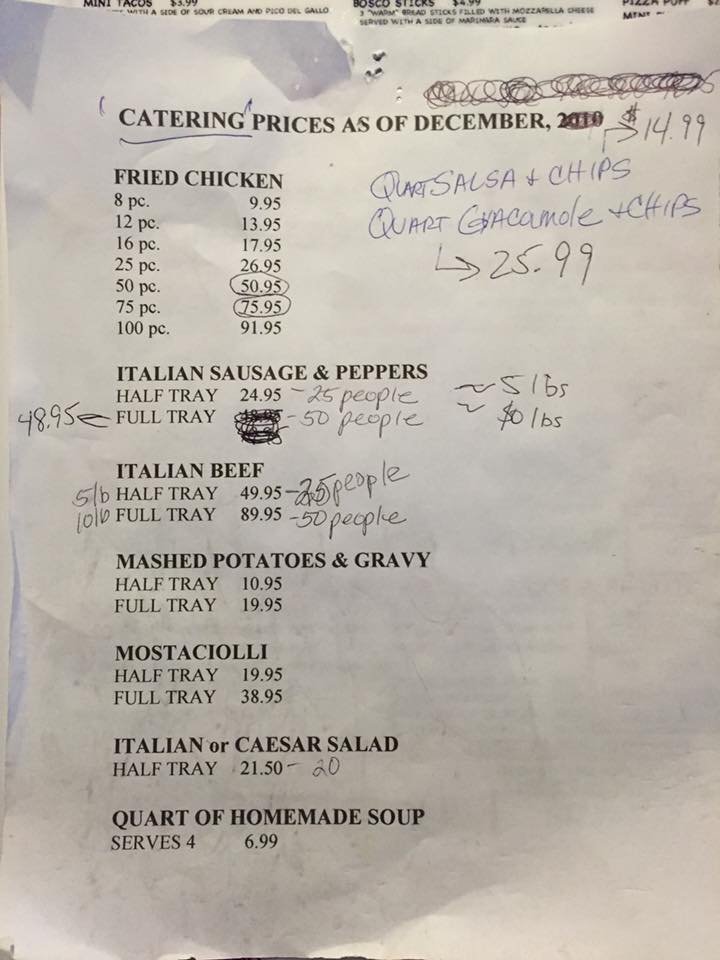 MINI TACOS $3.99
WITH A SIDE OF SOUR CREAM AND PICO DEL GALLO
BOSCO STICKS $4.99
3 "WARM" BREAD STICKS FILLED WITH MOZZARELLA CHEESE
SERVED WITH A SIDE OF MARINARA SAUCE
PIZZA PUFF
CATERING PRICES AS OF DECEMBER, 2010
$14.99
QUART SALSA + CHIPS
QUART GUACAMOLE + CHIPS
25.99
FRIED CHICKEN
8 pc. 9.95
12 pc. 13.95
16 pc. 17.95
25 pc. 26.95
50 pc. 50.95
75 pc. 75.95
100 pc. 91.95
ITALIAN SAUSAGE & PEPPERS
HALF TRAY 24.95 - 25 people ~ 5 lbs
48.95 FULL TRAY - 50 people ~ 10 lbs
ITALIAN BEEF
5lb HALF TRAY 49.95 - 25 people
10lb FULL TRAY 89.95 - 50 people
MASHED POTATOES & GRAVY
HALF TRAY 10.95
FULL TRAY 19.95
MOSTACIOLLI
HALF TRAY 19.95
FULL TRAY 38.95
ITALIAN or CAESAR SALAD
HALF TRAY 21.50 - 20
QUART OF HOMEMADE SOUP
SERVES 4 6.99